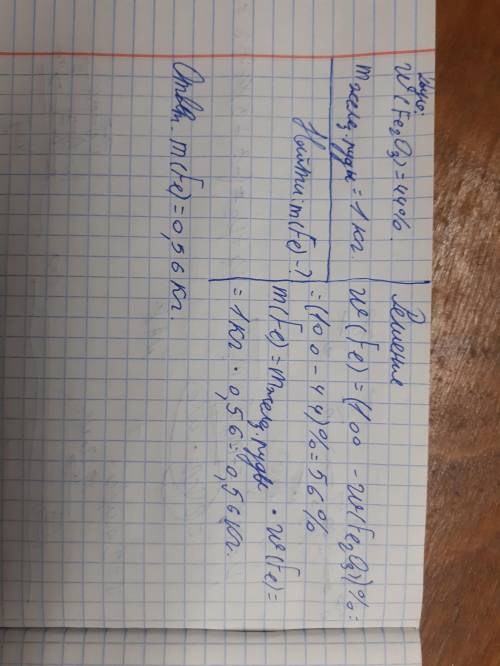 Дано:
w(Fe₂O₃)=44%.
m желез. руды = 1 кг
Найти: m(Fe)-?
Решения
w(Fe)=(100 - w(Fe₂O₃))%=
=(100-44)%=56%
m(Fe)=m желез. руды · w(Fe)=
=1кг · 0,56=0,56кг.
Ответ. m(Fe)=0,56 кг.